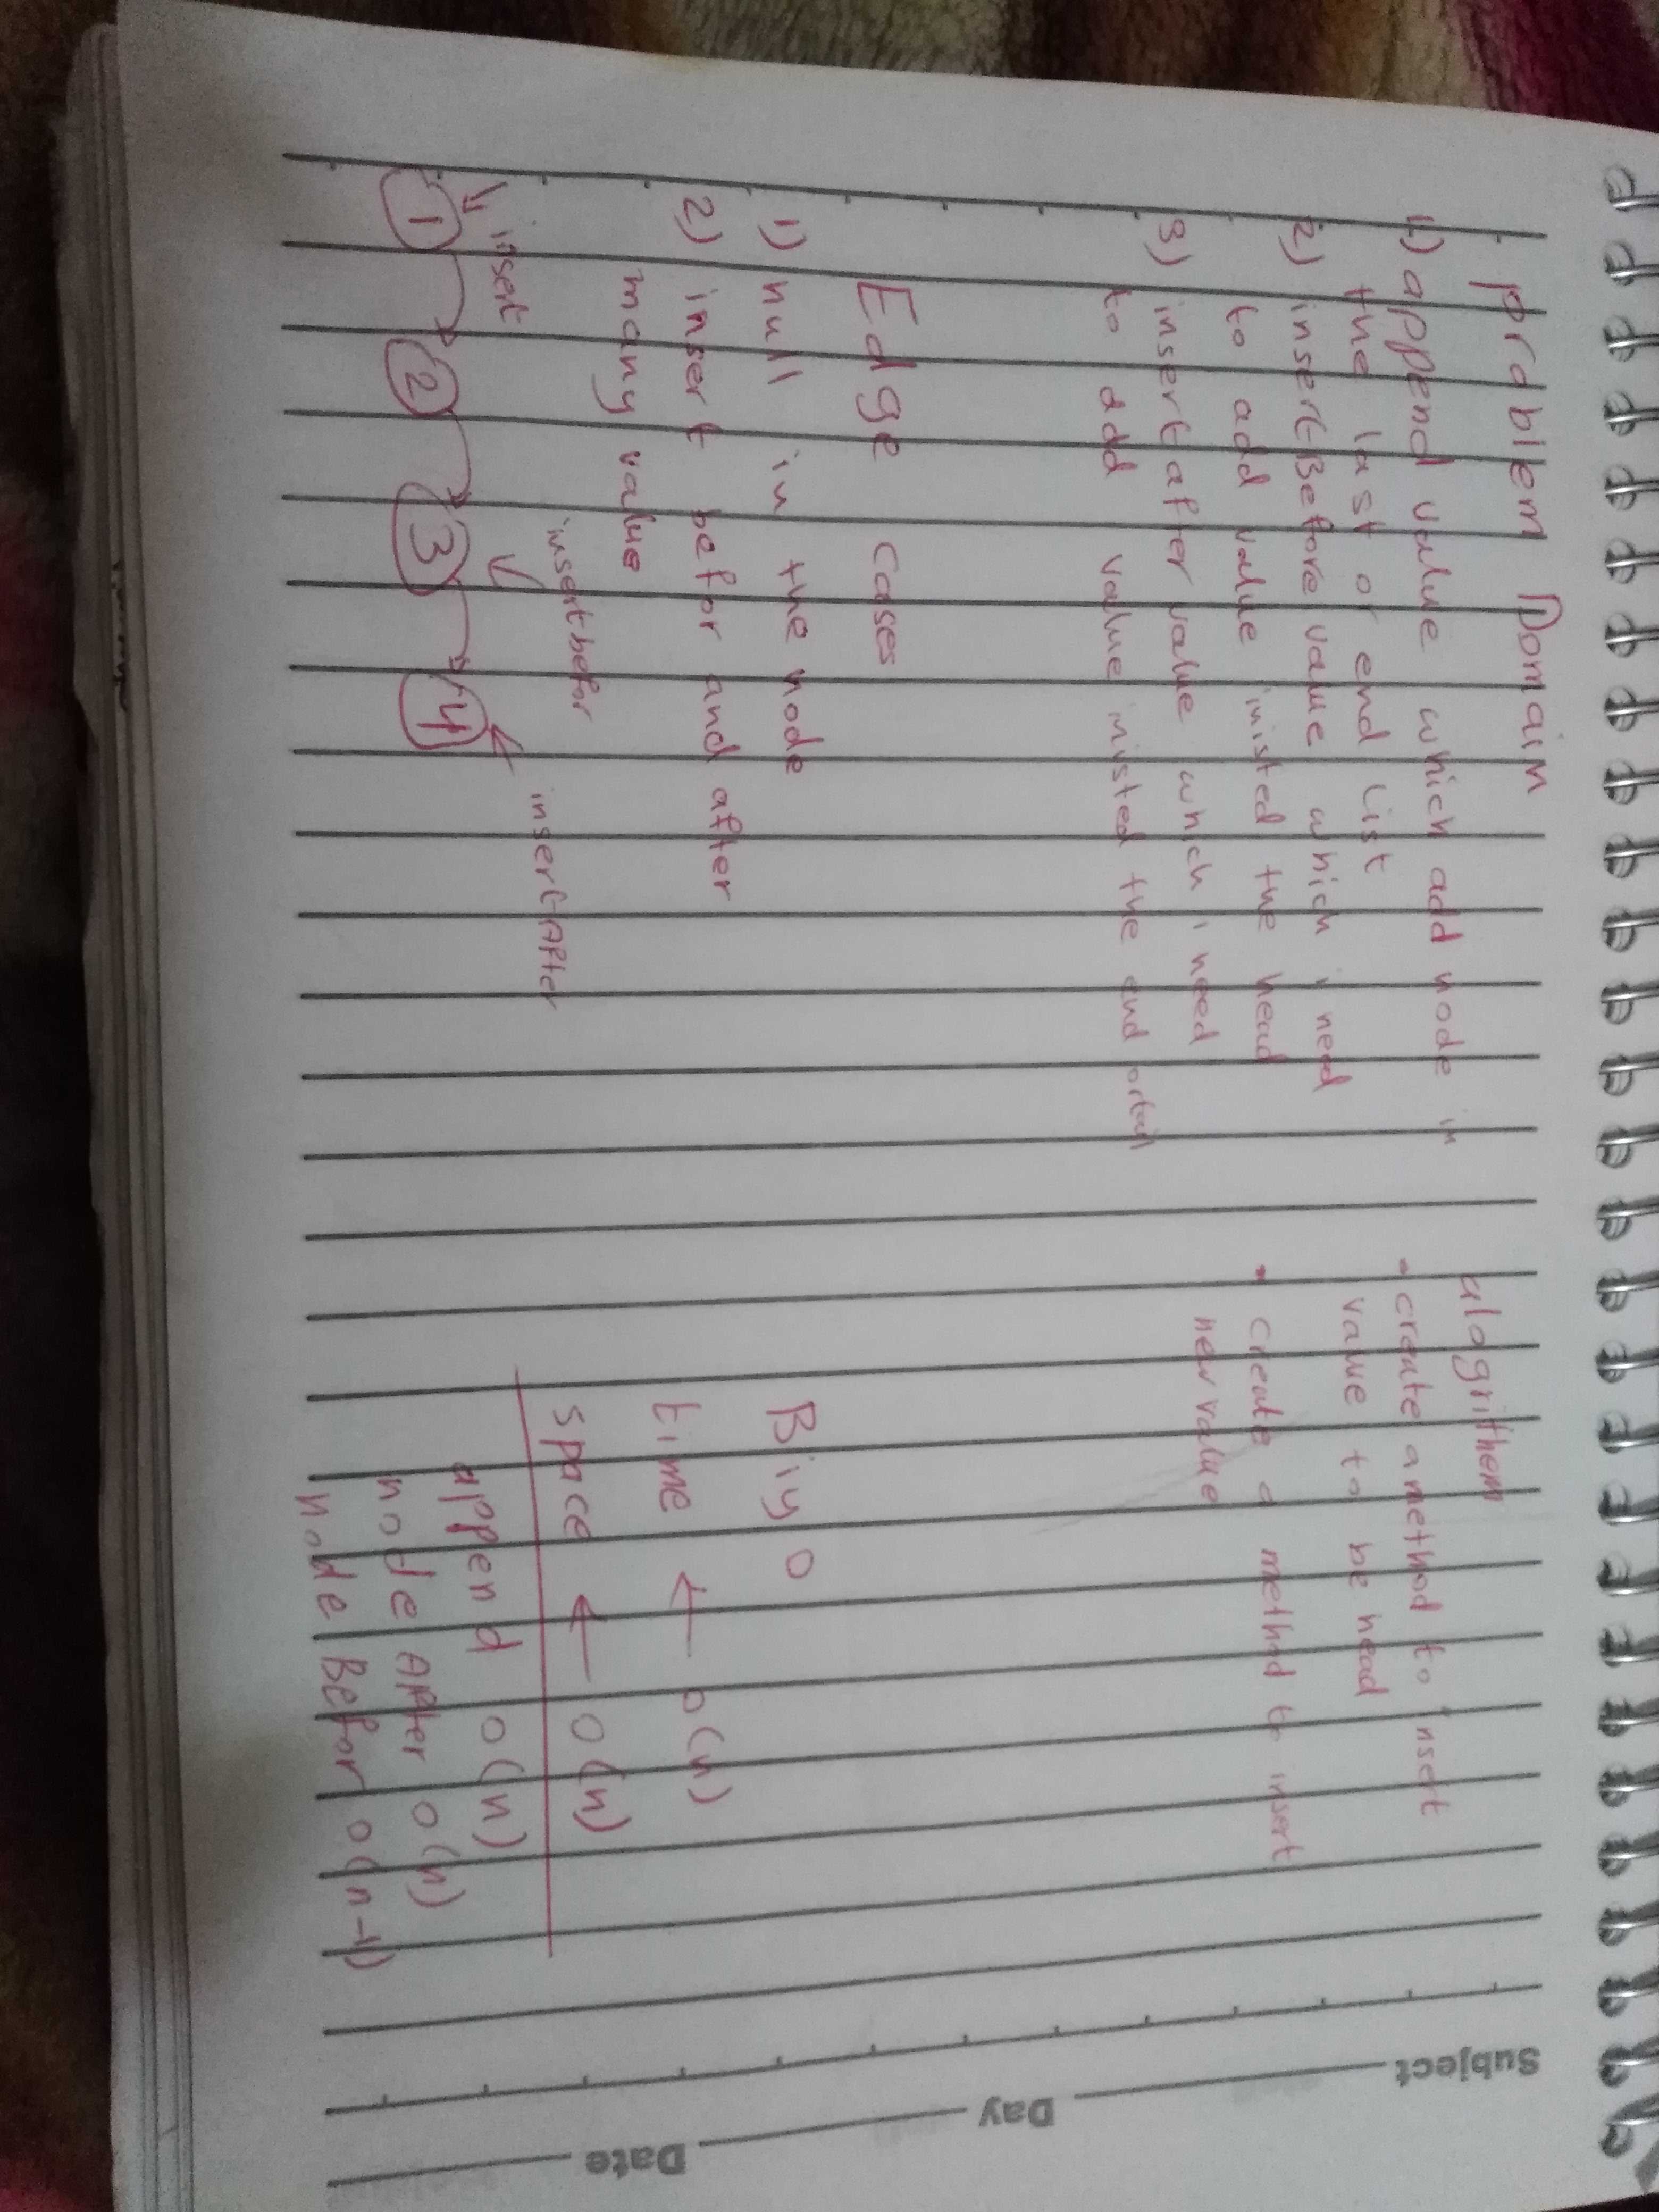 problem Domain
1) append value which add node in
the last or end list
2) insert Before value which i need
to add value insted the head
3) insert after value which i need
to add value insted the end or tail
Edge cases
1) null in the node
2) insert befor and after
many value
insert
insert befor
insert After
1 2 3 4
alogrithem
• create a method to insert
value to be head
• create a method to insert
new value
Big O
time ← o(n)
space ← o(n)
append o(n)
node After o(n)
node Befor o(n-1)
Subject
Day
Date